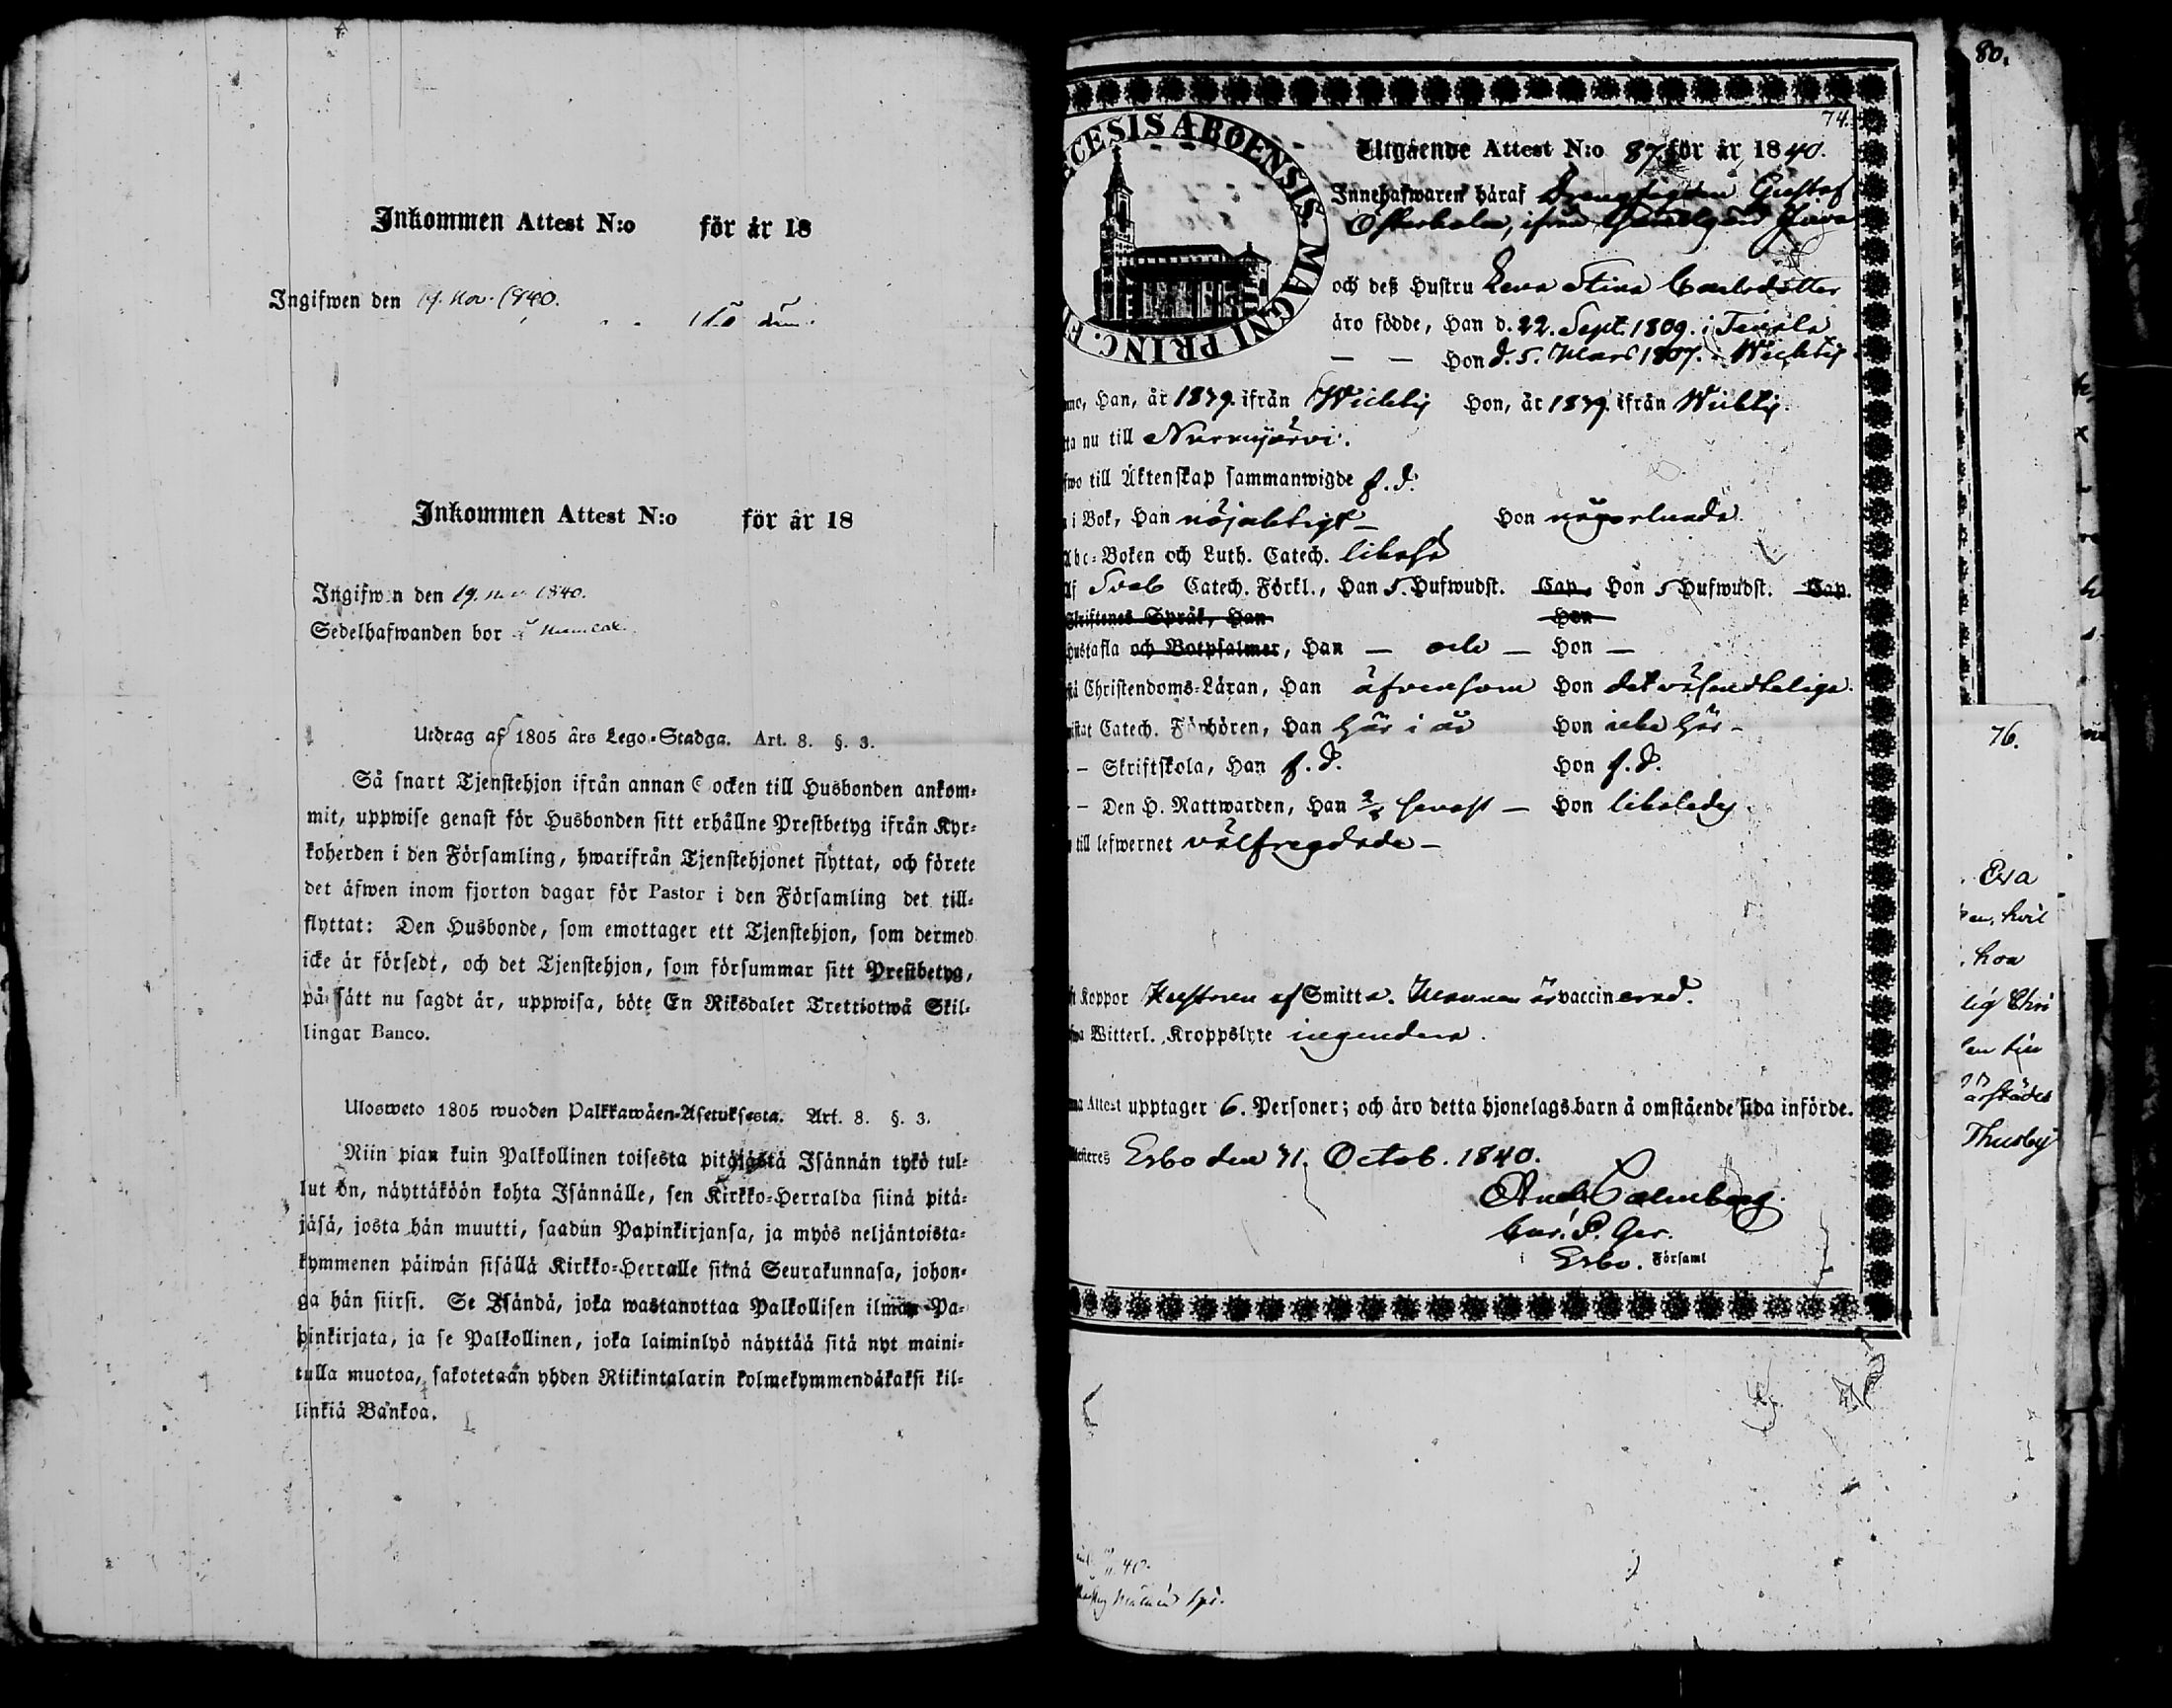 Inkommen Attest N:o för år 18
Ingifwen den 19. Nov. 1840.
Inkommen Attest N:o för år 18
Ingifwen den 19. nov 1840.
Sedelhafwanden bor
Utdrag af 1805 års Lego-Stadga. Art. 8. §. 3.
Så snart Tjenstehjon ifrån annan Socken till Husbonden ankom-
mit, uppwise genast för Husbonden sitt erhållne Prestbetyg ifrån Kyr-
koherden i den Församling, hwarifrån Tjenstehjonet flyttat, och förete
det äfwen inom fjorton dagar för Pastor i den Församling det till-
flyttat: Den Husbonde, som emottager ett Tjenstehjon, som dermed
icke är försedt, och det Tjenstehjon, som försummar sitt Prestbetyg,
på sätt nu sagdt är, uppwisa, böte En Riksdaler Trettiotwå Skil-
lingar Banco.
Ulosweto 1805 wuoden Palkkawäen-Asetuksesta. Art. 8. §. 3.
Niin pian kuin Palkollinen toisesta pitäjästä Isännän tykö tul-
lut on, näyttäköön kohta Isännälle, sen Kirkko-Herralda siinä pitä-
jäsä, josta hän muutti, saadun Papinkirjansa, ja myös neljäntoista-
kymmenen päiwän sisällä Kirkko-Herralle siinä Seurakunnasa, johon-
ga hän siirsi. Se Isändä, joka wastanottaa Palkollisen ilman Pa-
pinkirjata, ja se Palkollinen, joka laiminlyö näyttää sitä nyt maini-
tulla muotoa, sakotetaan yhden Riikintalarin kolmekymmendäkaksi kil-
linkiä Bankoa.
80.
74.
CESIS ABOENSIS MAGNI PRINC. F
Utgående Attest N:o 87 för år 1840.
Innehafwaren häraf Gustaf
Österholm, ifrån
och deß Hustru Lena Stina Carlsdotter
äro födde, Han d. 22. Sept. 1809. i Tenala
— — Hon d. 5. Mars 1807. i Wichtis
Han, år 1839. ifrån Wichtis Hon, år 1839. ifrån Wichtis.
nu till Nurmijärvi.
till Äktenskap sammanwigde f. d.
i Bok, Han nöjaktigt — Hon någorlunda.
Abc-Boken och Luth. Catech. likaså
Af Sveb Catech. Förkl., Han 5. Hufwudst. Cap. Hon 5 Hufwudst. Cap.
Skriftenes Språk, Han Hon
Hustafla och Botpsalmer, Han — och — Hon —
Christendoms-Läran, Han äfvensom Hon det väsendtliga.
Catech. Förhören, Han här i år Hon icke här —
— Skriftskola, Han f. d. Hon f. d.
— Den H. Nattwarden, Han senast — Hon likaledes
till lefwernet välfregdade —
Koppor Hustrun af Smitta. Mannen är vaccinerad.
Witterl. Kroppslyte ingendera.
Attest upptager 6. Personer; och äro detta hjonelags barn å omstående sida införde.
Esbo den 31. Octob. 1840.
And. Palmberg.
i Esbo. Församl
76.
Eva
hon
Thusby